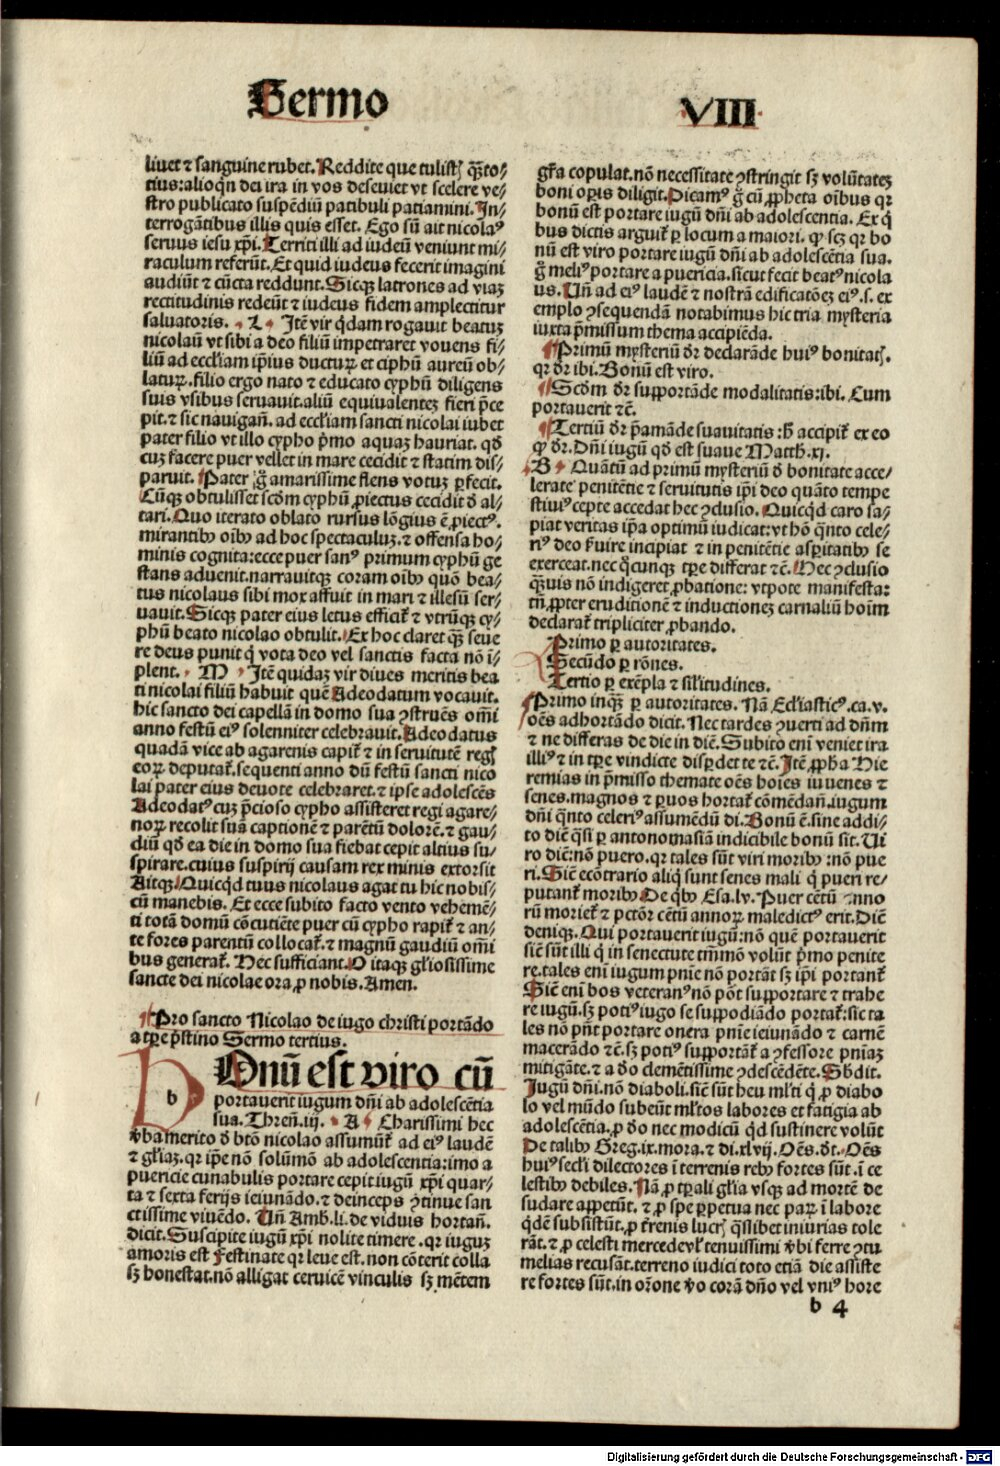 Sermo
VIII
liuet ⁊ sanguine rubet. Reddite que tulistꝭ qͣꝫto⸗
tius: alioqͥn dei ira in vos deseuiet vt scelere ve⸗
stro publicato suspēdiū patibuli patiamini. In⸗
terrogātibus illis quis esset. Ego sū ait nicolaꝰ
seruus iesu xp̄i. Territi illi ad iudeū veniunt mi⸗
raculum referūt. Et quid iudeus fecerit imagini
audiūt ⁊ cūcta reddunt. Sicqꝫ latrones ad viaꝫ
rectitudinis redeūt ⁊ iudeus fidem amplectitur
saluatoris. L Itē vir qͥdam rogauit beatuꝫ
nicolaū vt sibi a deo filiū impetraret vouens fi⸗
liū ad eccl̄iam ip̄ius ducturꝫ et ciphū aureū ob⸗
laturꝫ. filio ergo nato ⁊ educato cyphū diligens
suis vsibus seruauit. aliū equiualenteꝫ fieri p̄ce
pit. ⁊ sic nauigan̄. ad eccl̄iam sancti nicolai iubet
pater filio vt illo cypho pͥmo aquaꝫ hauriat. qd̄
cuꝫ facere puer vellet in mare cecidit ⁊ statim dis⸗
paruit. Pater gͦ amarissime flens votuꝫ ꝑfecit.
Cūqꝫ obtulisset scd̄m cyphū ꝓiectus cecidit d̄ al⸗
tari. Quo iterato oblato rursus lōgius ē ꝓiectꝰ.
mirantibꝫ oībꝫ ad hoc spectaculuꝫ. ⁊ offensa ho⸗
minis cognita: ecce puer sanꝰ primum cyphū ge
stans aduenit. narrauitqꝫ coram oībꝫ quō bea⸗
tus nicolaus sibi mox affuit in mari ⁊ illesū ser⸗
uauit. Sicqꝫ pater eius letus efficit̄ ⁊ vtrūqꝫ cy⸗
phū beato nicolao obtulit. Ex hoc claret qͣꝫ seue
re deus punit qͥ vota deo vel sanctis facta nō ī⸗
plent. M Itē quidaꝫ vir diues meritis bea
ti nicolai filiū habuit quē Adeodatum vocauit.
hic sancto dei capellā in domo sua ꝯstruēs om̄i
anno festū eiꝰ solenniter celebrauit. Adeodatus
quadā vice ab agarenis capit̄ ⁊ in seruitutē regꝭ
eoꝝ deputat̄. sequenti anno dū festū sancti nico
lai pater eius deuote celebraret. ⁊ ipse adolescēs
Adeodatꝰ cuꝫ p̄cioso cypho assisteret regi agare⸗
noꝝ recolit suā captionē ⁊ parētū dolorē. ⁊ gau⸗
diū qd̄ ea die in domo sua fiebat cepit altius su⸗
spirare. cuius suspirij causam rex minis extorsit
Aitqꝫ. Quicqͥd tuus nicolaus agat tu hic nobis⸗
cū manebis. Et ecce subito facto vento vehemē⸗
ti totā domū cōcutiēte puer cū cypho rapit̄ ⁊ an⸗
te fores parentū collocat̄. ⁊ magnū gaudiū om̄i
bus generat̄. Hec sufficiant. O itaqꝫ gl̄iosissime
sancte dei nicolae ora ꝓ nobis. Amen.
Pro sancto Nicolao de iugo christi portādo
a tꝑe pͥstino Sermo tertius.
b
Onū est viro cū
portauerit iugum dn̄i ab adolescētia
sua. Thren̄. iij. A Charissimi hec
v̄ba merito d̄ btō nicolao assumūt̄ ad eiꝰ laudē
⁊ gl̄iaꝫ. qꝛ ip̄e nō solūmō ab adolescentia: imo a
puericie cunabulis portare cepit iugū xp̄i quar⸗
ta ⁊ sexta ferijs ieiunādo. ⁊ deinceps ꝯtinue san
ctissime viuēdo. Un̄ Amb. li. de viduis hortan̄.
dicit. Suscipite iugū xp̄i nolite timere. qꝛ iuguꝫ
amoris est Festinate qꝛ leue est. non cōterit colla
sꝫ honestat. nō alligat ceruicē vinculis sꝫ mētem
gr̄a copulat. nō necessitate ꝯstringit sꝫ volūtateꝫ
boni oꝑis diligit. Dicamꝰ gͦ cū ꝓpheta oībus qꝛ
bonū est portare iugū dn̄i ab adolescentia. Ex qͥ
bus dictis arguit̄ ꝑ locum a maiori. qꝙ scꝫ qꝛ bo
nū est viro portare iugū dn̄i ab adolescētia sua.
gͦ meliꝰ portare a puericia. sicut fecit beatꝰ nicola
us. Un̄ ad eiꝰ laudē ⁊ nostrā edificatōeꝫ eiꝰ. s. ex
emplo ꝯsequendā notabimus hic tria mysteria
iuxta p̄missum thema accipiēda.
Primū mysteriū dr̄ declarāde huiꝰ bonitatꝭ.
qꝛ dr̄ ibi. Bonū est viro.
Scd̄m dr̄ supportāde modalitatis: ibi. Cum
portauerit ⁊c̄.
Tertiū dr̄ p̄amāde suauitatis: h̄ accipit̄ ex eo
qꝙ dr̄. Dn̄i iugū qd̄ est suaue Matth. xj.
B Quātū ad primū mysteriū d̄ bonitate acce⸗
lerate penitētie ⁊ seruitutis ip̄i deo quāto tempe
stiuiꝰ cepte accedat hec ꝯclusio. Quicqͥd caro sa⸗
piat veritas ip̄a optimū iudicat: vt hō qͣnto cele⸗
riꝰ deo ẜuire incipiat ⁊ in penitētie asꝑitatibꝫ se
exerceat. nec qͥcunqꝫ tꝑe differat ⁊c̄. Hec ꝯclusio
qͣꝫuis nō indigeret ꝓbatione: vtpote manifesta:
tn̄ ꝓpter eruditionē ⁊ inductioneꝫ carnaliū hoīm
declarat̄ tripliciter ꝓbando.
Primo ꝑ autoritates.
Secūdo ꝑ rōnes.
Tertio ꝑ exēpla ⁊ sil̄itudines.
Primo inqͣꝫ ꝑ autoritates. Nā Ecl̄iasticꝰ. ca. v.
oēs adhortādo dicit. Nec tardes ꝯuerti ad dn̄m
⁊ ne differas de die in diē. Subito enī veniet ira
illiꝰ ⁊ in tꝑe vindicte disꝑdet te ⁊c̄. Itē ꝓph̄a Hie
remias in p̄misso themate oēs hoīes iuuenes ⁊
senes. magnos ⁊ ꝑuos hortat̄ cōmēdan̄. iugum
dn̄i qͣnto celeriꝰ assumēdū di. Bonū ē. sine addi⸗
to diē qͣsi ꝑ antonomasiā indicibile bonū sit. Ui
ro diē: nō puero. qꝛ tales sūt viri moribꝫ: nō pue
ri. Sic̄ ecōtrario aliqͥ sunt senes mali qͥ pueri re⸗
putant̄ moribꝫ De qͥbꝫ Esa. lv. Puer cētū anno
rū moriet̄ ⁊ pctōr cētū annoꝝ maledictꝰ erit. Diē
deniqꝫ. Qui portauerit iugū: nō quē portauerit
sic̄ sūt illi qͥ in senectute tm̄mō volūt pͥmo penite
re. tales eni iugum pn̄ie nō portāt sꝫ ip̄i portant̄
Sic̄ eni bos veteranꝰ nō pōt supportare ⁊ trahe
re iugū. sꝫ potiꝰ iugo se suppodiādo portat̄: sic ta
les nō pn̄t portare onera pn̄ie ieiunādo ⁊ carnē
macerādo ⁊c̄. sꝫ potiꝰ supportāt̄ a ꝯfessore pn̄iaꝫ
mitigāte. ⁊ a do clemētissime ꝯdescēdēte. Sb̄dit.
Iugū dn̄i. nō diaboli. sic̄ sūt heu ml̄ti qͥ ꝓ diabo
lo vel mūdo subeūt ml̄tos labores et fatigia ab
adolescētia. ꝓ do nec modicū qͥd sustinere volūt
De talibꝫ Greg. ix. mora. ⁊ di. xlvij. Oēs. dt̄. Oēs
huiꝰ secl̄i dilectores ī terrenis rebꝫ fortes sūt. ī ce
lestibꝫ debiles. Nā ꝓ tꝑali gl̄ia vsqꝫ ad mortē de
sudare appetūt. ⁊ ꝓ spe ꝑpetua nec paꝝ ī labore
qͥdē subsistūt. ꝓ t̄renis lucrꝭ qͣslibet iniurias tole
rāt. ⁊ ꝓ celesti mercede vl̄ tenuissimi v̄bi ferre ꝯtu
melias recusāt. terreno iudici toto etiā die assiste
re fortes sūt. in or̄one v̄o corā dn̄o vel vniꝰ hore
b 4
Digitalisierung gefördert durch die Deutsche Forschungsgemeinschaft - DFG